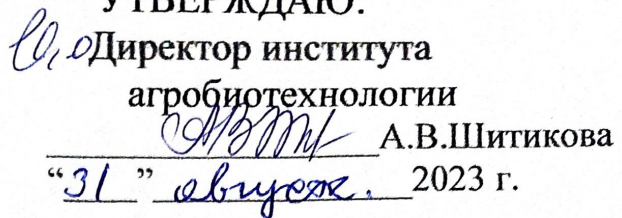 УТВЕРЖДАЮ:
И.о Директор института
агробиотехнологии
А.В.Шитикова
“31” августа 2023 г.